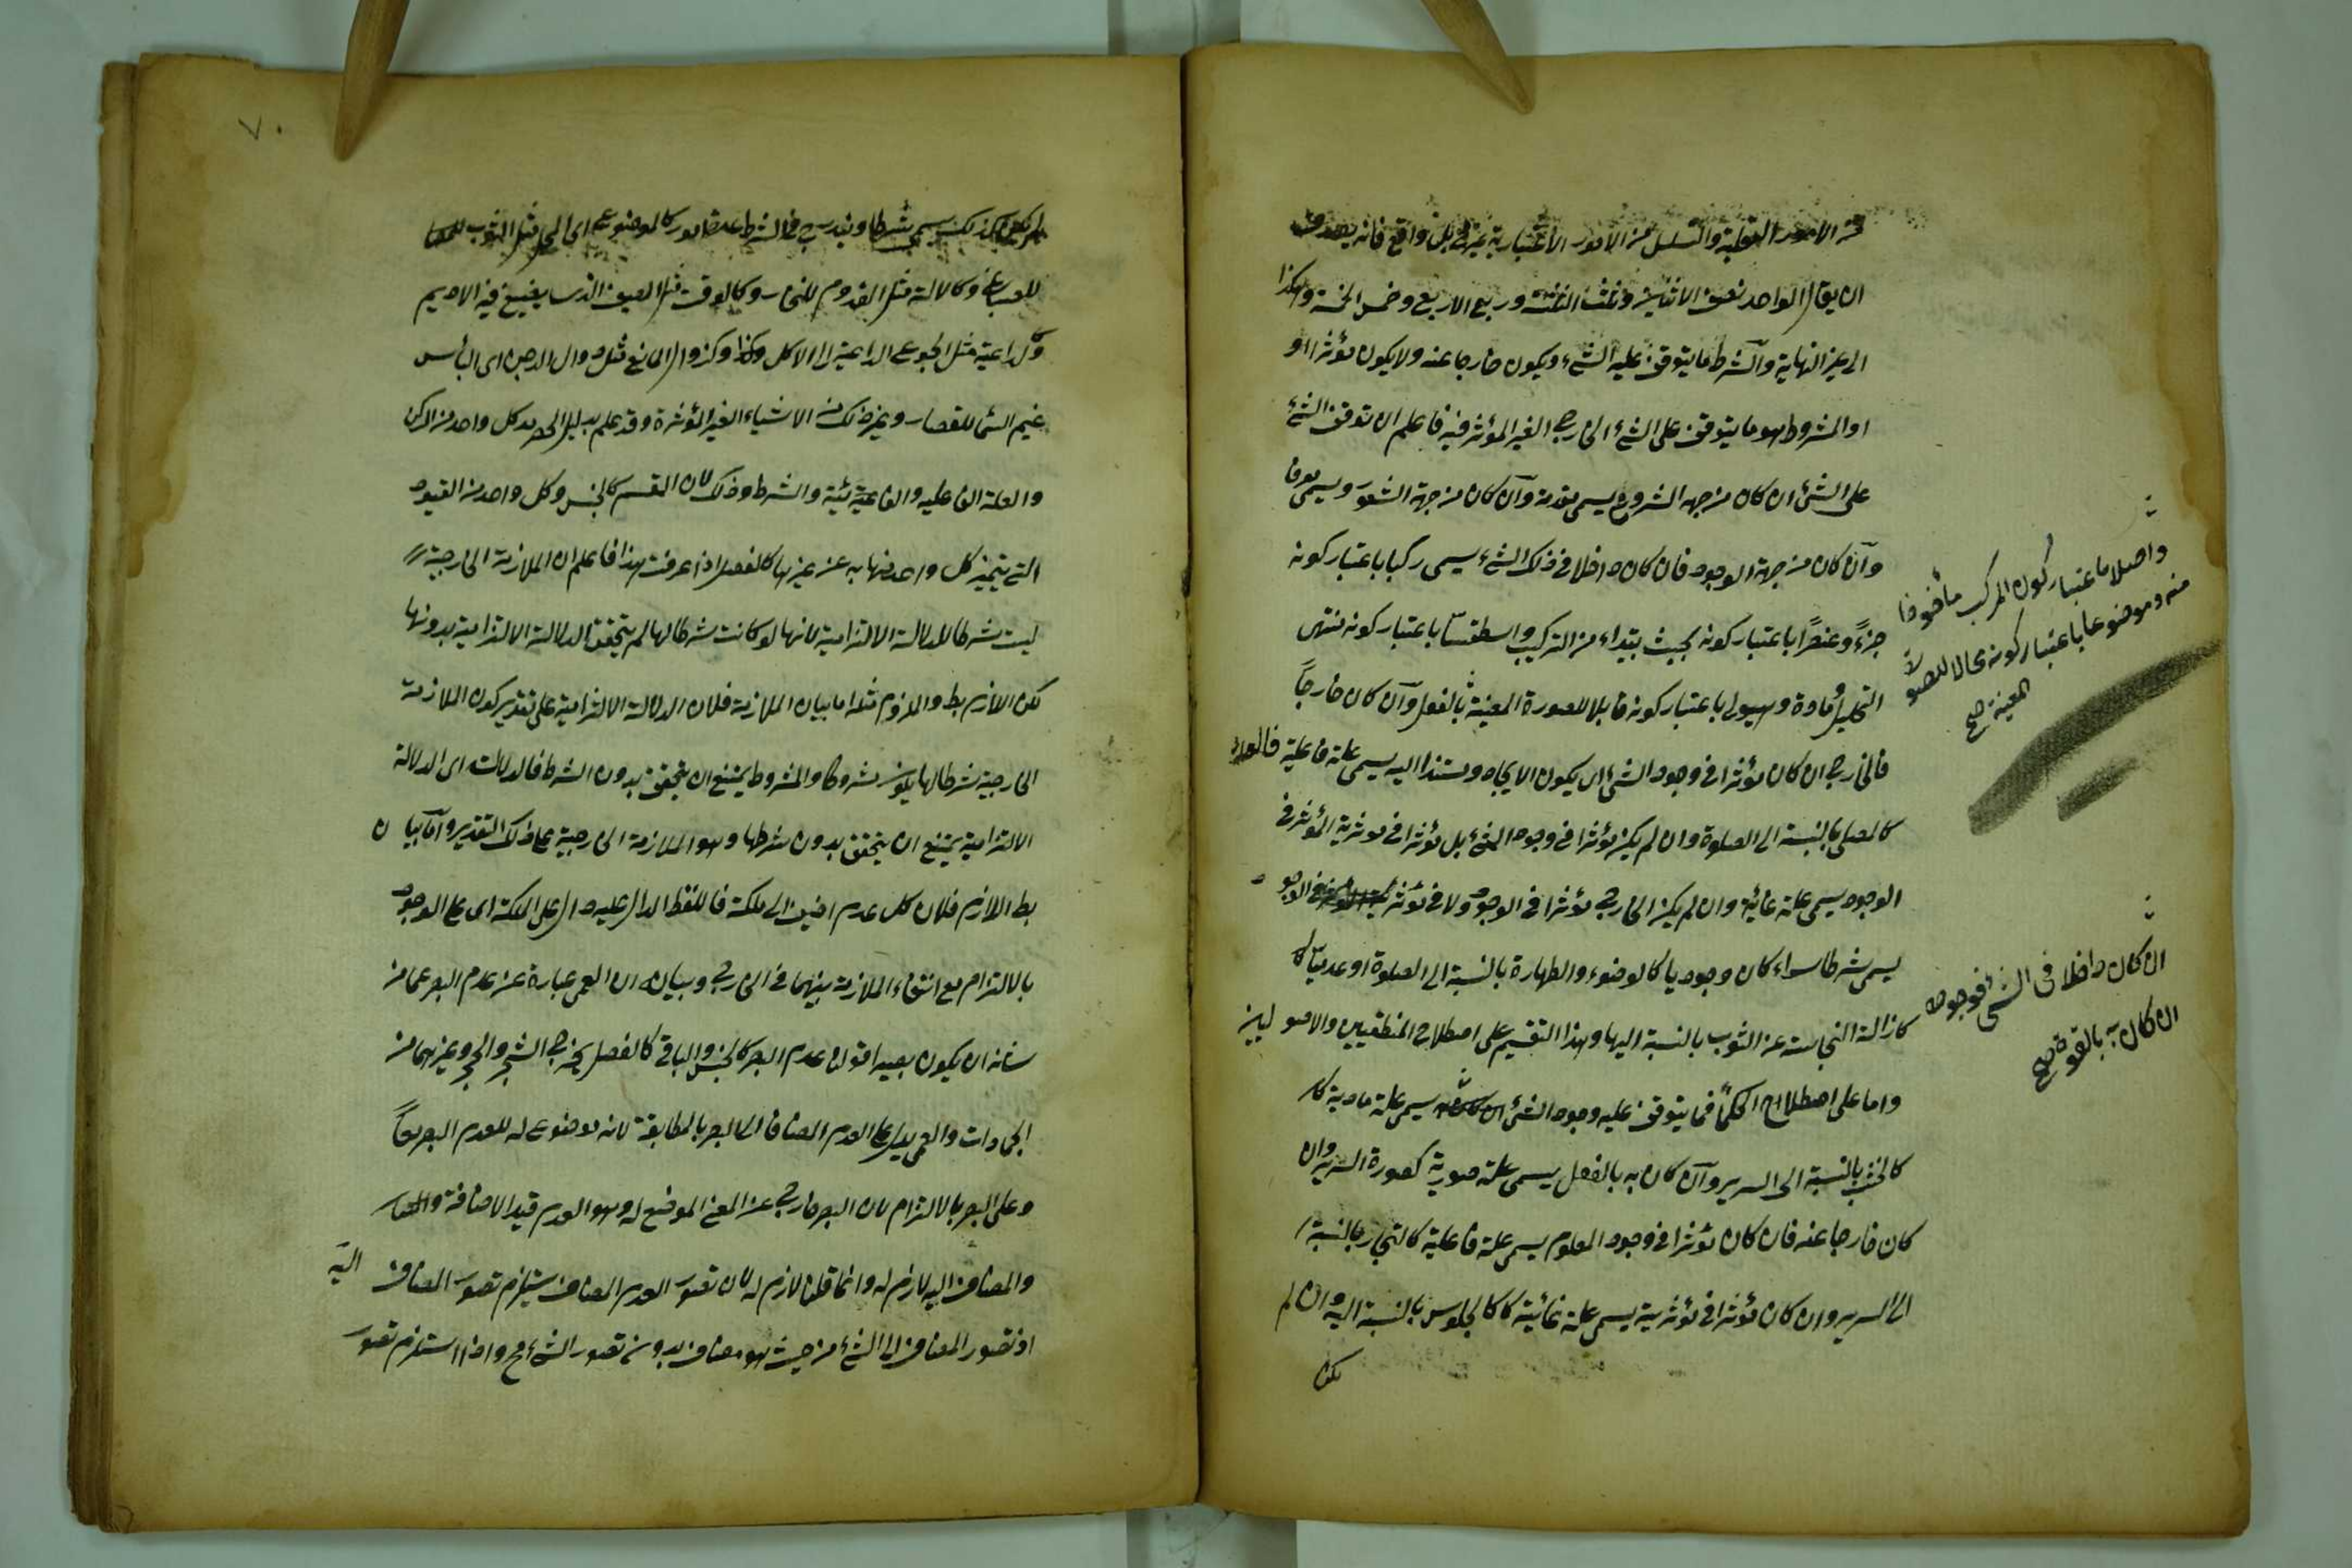 من الامور العقلية والتسلسل من الامور الاعتبارية غير بل واقع فانه يصدق
ان يقال الواحد نصف الاثنين وثلث الثلثة وربع الاربع وخمس الخمسة وهكذا
الى غير النهاية والشرط ما يتوقف عليه الشئ ويكون خارجا عنه ولا يكون مؤثرا او
او المشروط هو ما يتوقف على الشئ الخارجى الغير المؤثر فيه فاعلم ان توقف الشئ
على الشئ ان كان من جهة الشروع يسمى مقدمة وان كان من جهة الشعور يسمى معرفا
وان كان من جهة الوجود فان كان داخلا فى ذلك الشئ يسمى ركنا باعتبار كونه
جزءً وعنصرًا باعتبار كونه بحيث يبتداء من التركيب واسطقسّا باعتبار كونه ينتهى
التحليل ومادة وهيولى باعتبار كونه قابلا للصورة المعينة بالفعل وان كان خارجاً
فالخارجى ان كان مؤثرا فى وجود الشئ اى يكون الايجاد مستندا اليه يسمى علة فاعلية
كالمصلى بالنسبة الى الصلوة وان لم يكن مؤثرا فى وجود الشئ بل مؤثرا فى مؤثرية المؤثر فى
الوجود يسمى علة غائية وان لم يكن الخارجى مؤثرا فى الوجود ولا فى مؤثرية فى الوجود
يسمى شرطا سواء كان وجوديا كالوضوء والطهارة بالنسبة الى الصلوة او عدميّا
كازالة النجاسة عن الثوب بالنسبة اليها وهذا التقسيم على اصطلاح المنطقيين والاصوليين
واما على اصطلاح الحكماء فما يتوقف عليه وجود الشئ يسمى علة مادية
كالخشب بالنسبة الى السرير وان كان به بالفعل يسمى علة صورية كصورة السرير وان
كان خارجا عنه فان كان مؤثرا فى وجود المعلوم يسمى علة فاعلية كالنجار بالنسبة
الى السرير وان كان مؤثرا فى مؤثرية يسمى علة غائية كالجلوس بالنسبة اليه وان لم
يكن
واصلا باعتبار كون المركب مأخوذا
منه وموضوعا باعتبار كونه محالا للصورة
المعينة صح
ان كان داخلا فى الشئ فوجوده
ان كان به بالقوة صح
٧٠
يسمى شرطا ويندرج فى الشرط عدة امور كالموضوع اى المحل مثل الثوب
للصباغ وكالالة مثل القدوم للنجار وكالوقت مثل الصيف الذى يصبغ فيه الاديم
وكالداعية مثل الجوع الداعية الى الاكل وكزوال المانع مثل زوال الدجن اى البأس
غيم السماء للقصار وغير ذلك من الاشياء الغير المؤثرة وقد علم بدليل الحصر حد كل واحد من الركن
والعلة الفاعلية والغائية والشرط وذلك لان المقسم كالجنس وكل واحد من القيود
التى يتميز كل واحد منها به عن غيرها كالفصل اذا عرفت هذا فاعلم ان الملازمة الخارجية
ليست شرطا للدلالة الالتزامية لانها لو كانت شرطا لها لم يتحقق الدلالة الالتزامية بدونها
لكن اللازم بط والملزوم مثله اما بيان الملازمة فلان الدلالة الالتزامية على تقدير كون الملازمة
الخارجية شرطا لها يكون مشروطا والمشروط يمتنع ان يتحقق بدون الشرط فالدلالة اى الدلالة
الالتزامية يمتنع ان يتحقق بدون شرطها وهو الملازمة الخارجية على ذلك التقدير واما بيان
بط اللازم فلان كل عدم اضيف الى ملكة فاللفظ الدال عليه دال على الملكة اى على الوجود
بالالتزام مع انتفاء الملازمة بينهما فى الخارج وبيانه ان العمى عبارة عن عدم البصر عما من
شانه ان يكون بصيرا فقولنا عدم البصر كالجنس والباقى كالفصل يخرج الشجر والحجر وغيرهما من
الجمادات والعمى يدل على العدم المضاف الى البصر بالمطابقة لانه موضوع له للعدم البصر
وعلى البصر بالالتزام لان البصر خارج عن المعنى الموضوع له وهو العدم قيد الاضافة
والمضاف اليه لازم له وانما قلنا لازم له لان تصور العدم المضاف يستلزم تصور المضاف اليه
اذ تصور المضاف الى الشئ من حيث هو مضاف بدون تصور الشئ مح واذا استلزم تصور